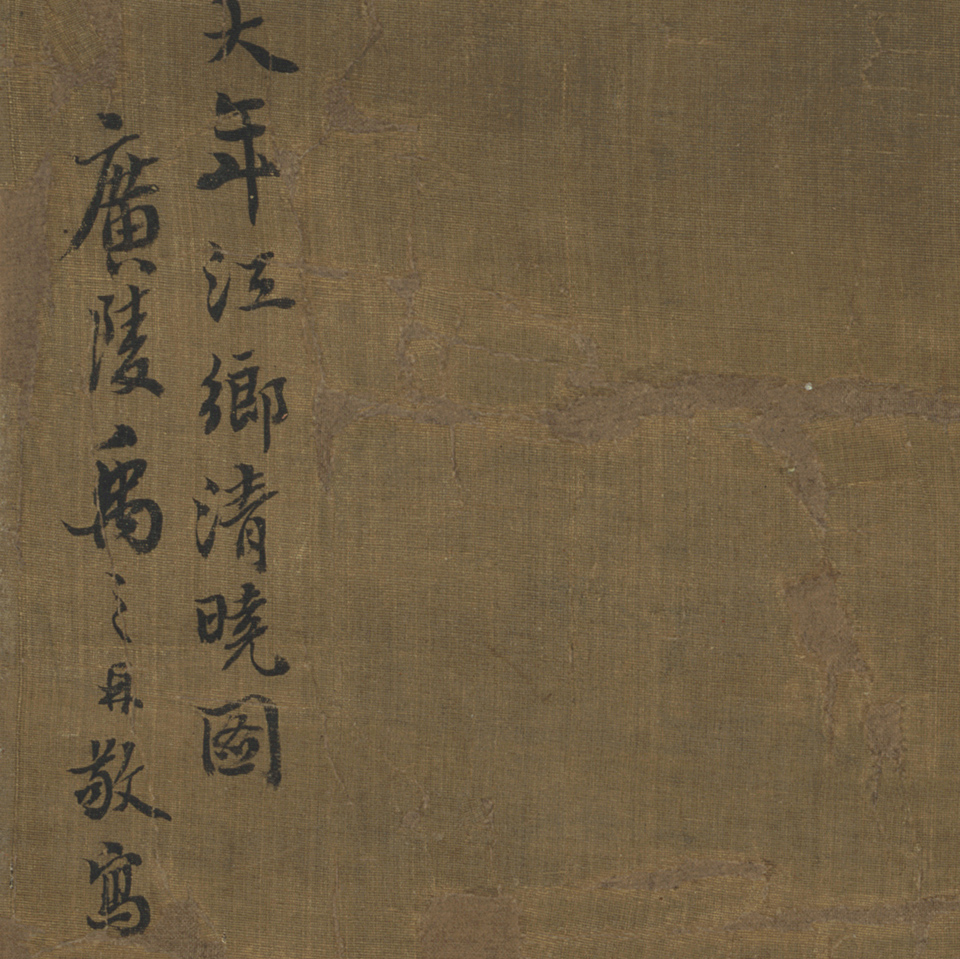 大年江鄉清曉圖
廣陵禹之鼎敬寫